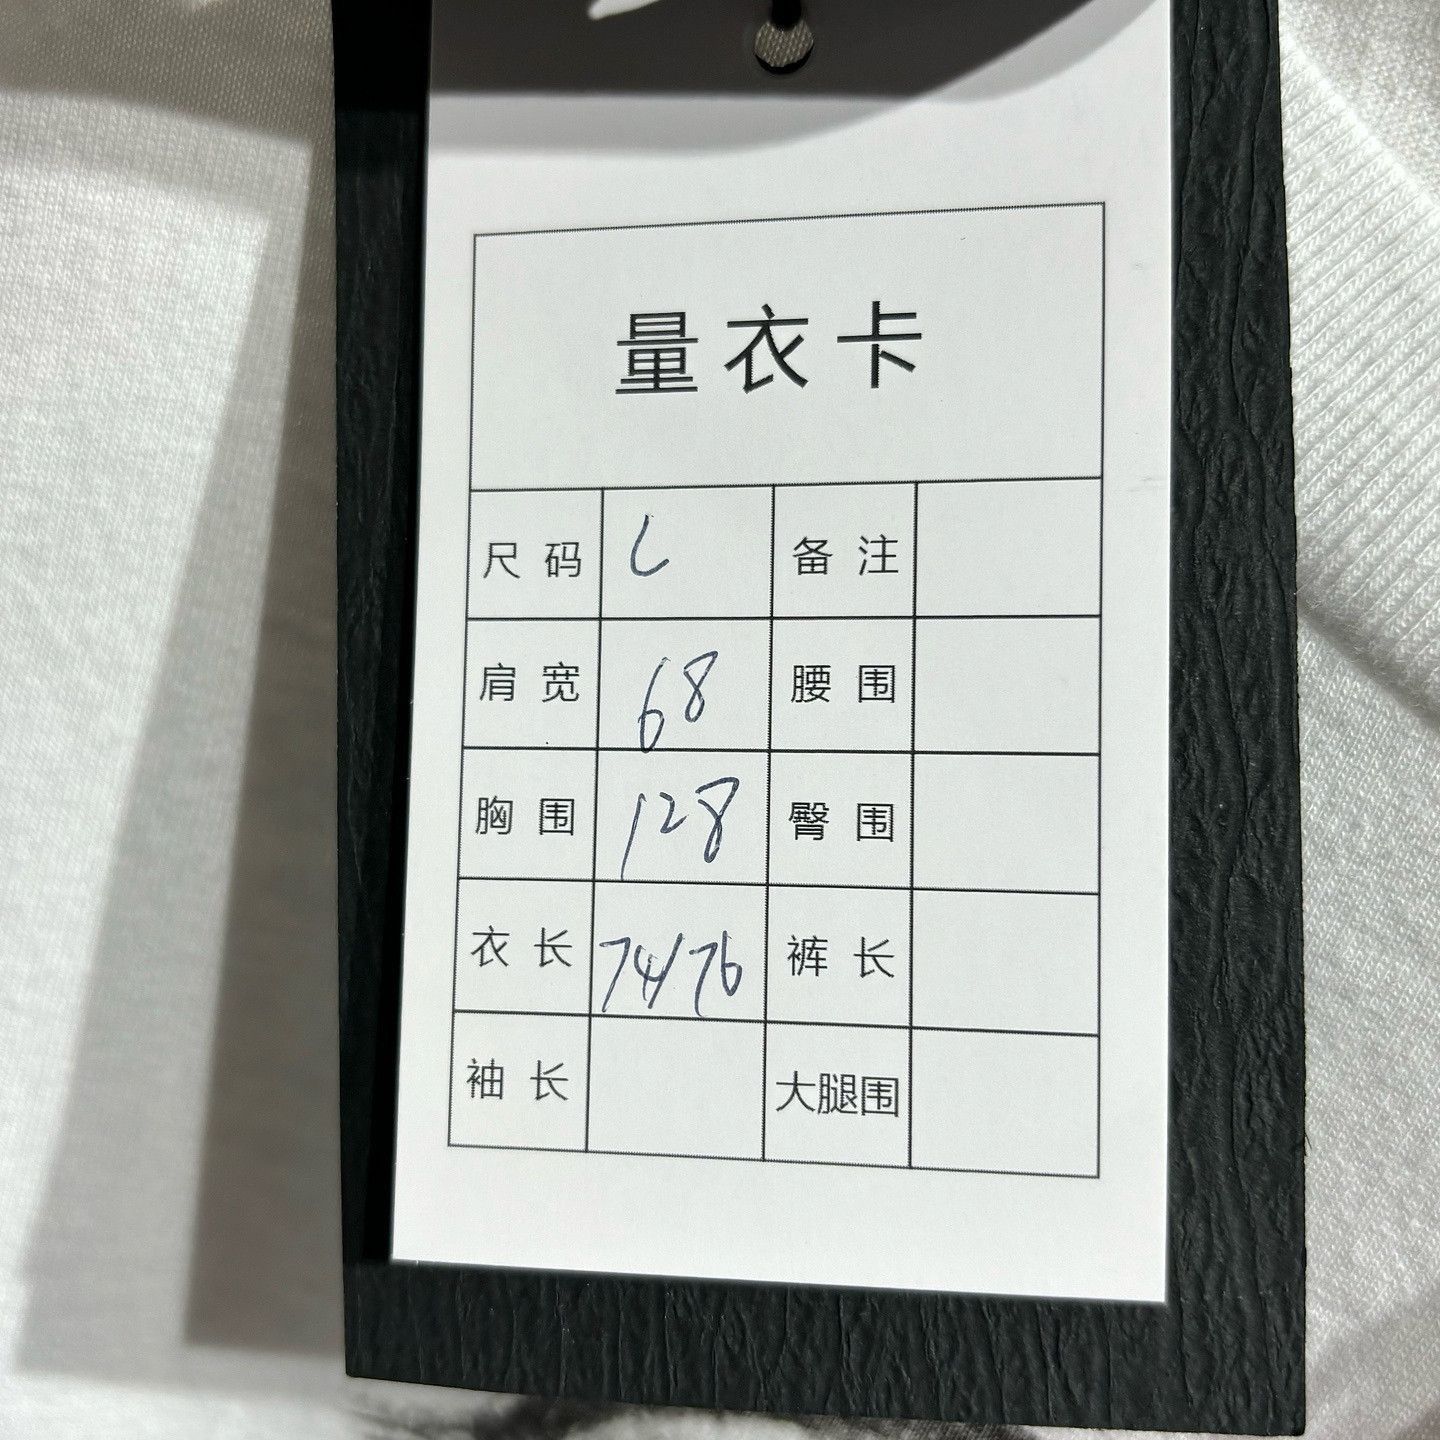 量衣卡
尺码 L 备注
肩宽 68 腰围
胸围 128 臀围
衣长 74/76 裤长
袖长 大腿围